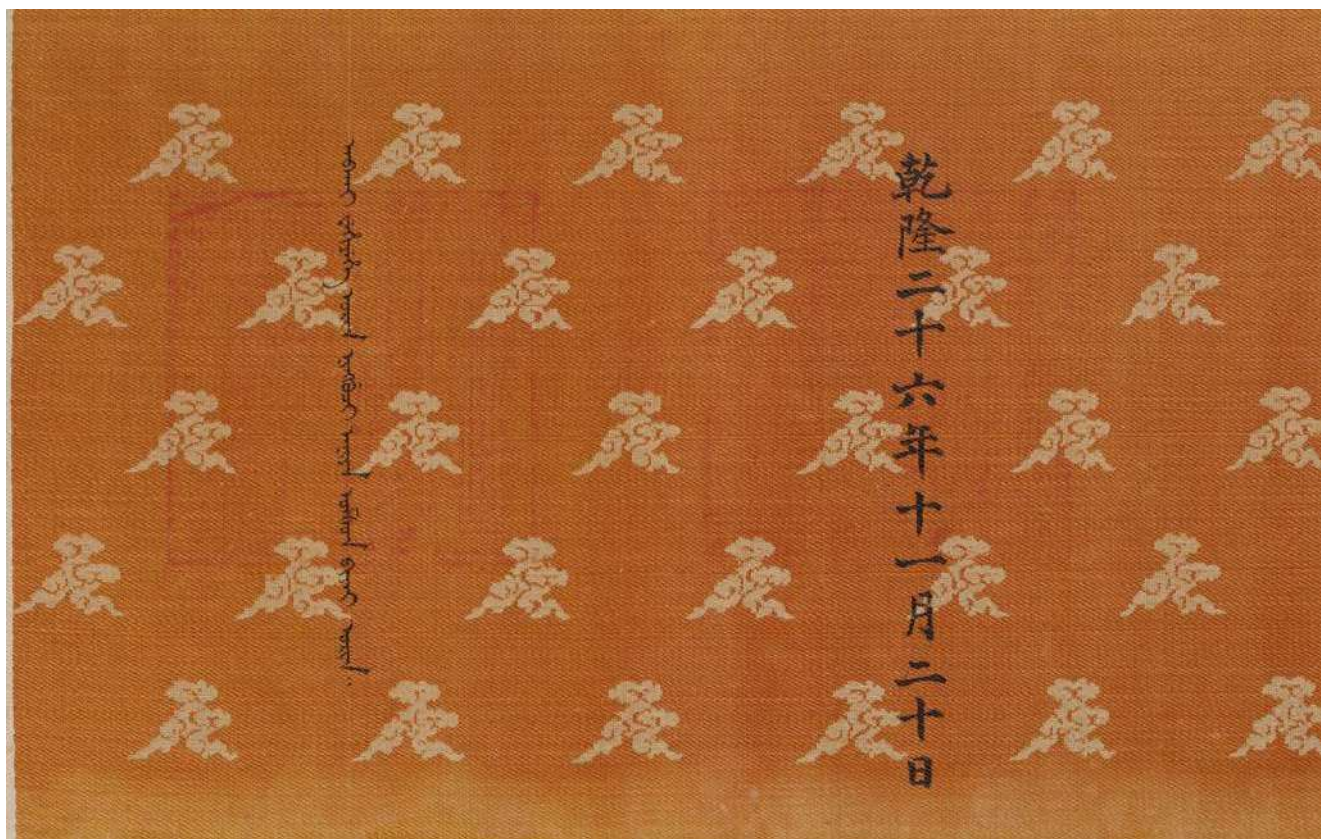 乾隆二十六年十一月二十日
ᠠᠪᡴᠠᡳ ᠸᡝᡥᡳᠶᡝᡥᡝ ᠣᡵᡳᠨ ᠨᡳᠩᡤᡠᠴᡳ ᠠᠨᡳᠶᠠ ᠣᠮᡧᠣᠨ ᠪᡳᠶᠠᡳ ᠣᡵᡳᠨ᠉